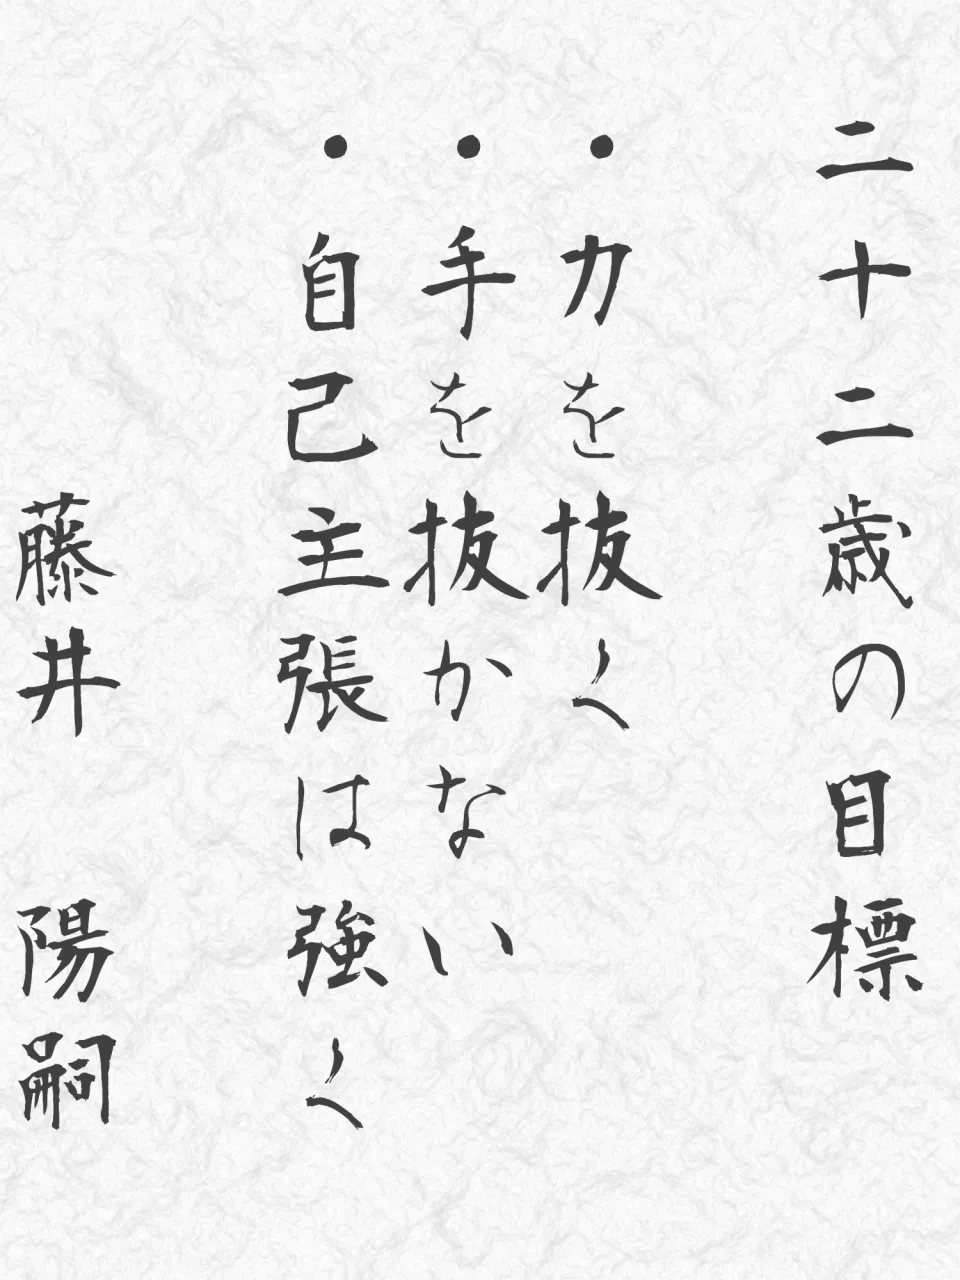 二十二歳の目標
・力を抜く
・手を抜かない
・自己主張は強く
藤井 陽嗣